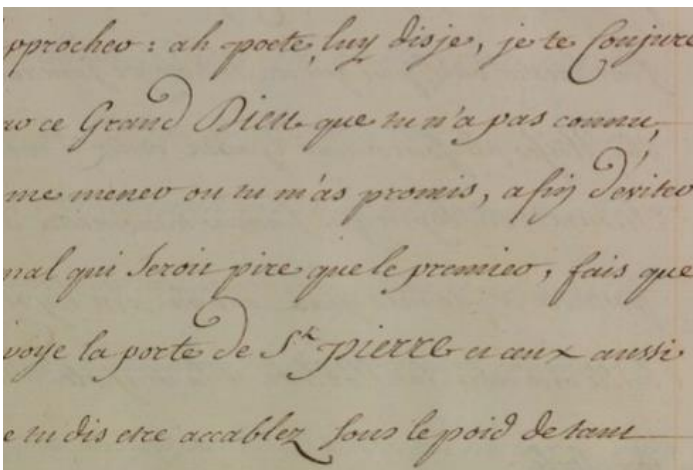 pprocher : ah poete, luy disje, je te Conjure
ar ce Grand Dieu que tu n'a pas connu,
me mener ou tu m'as promis, afin d'éviter
mal qui seroit pire que le premier, fais que
voye la porte de St. Pierre et ceux aussi
e tu dis etre accablez sous le poid de tant